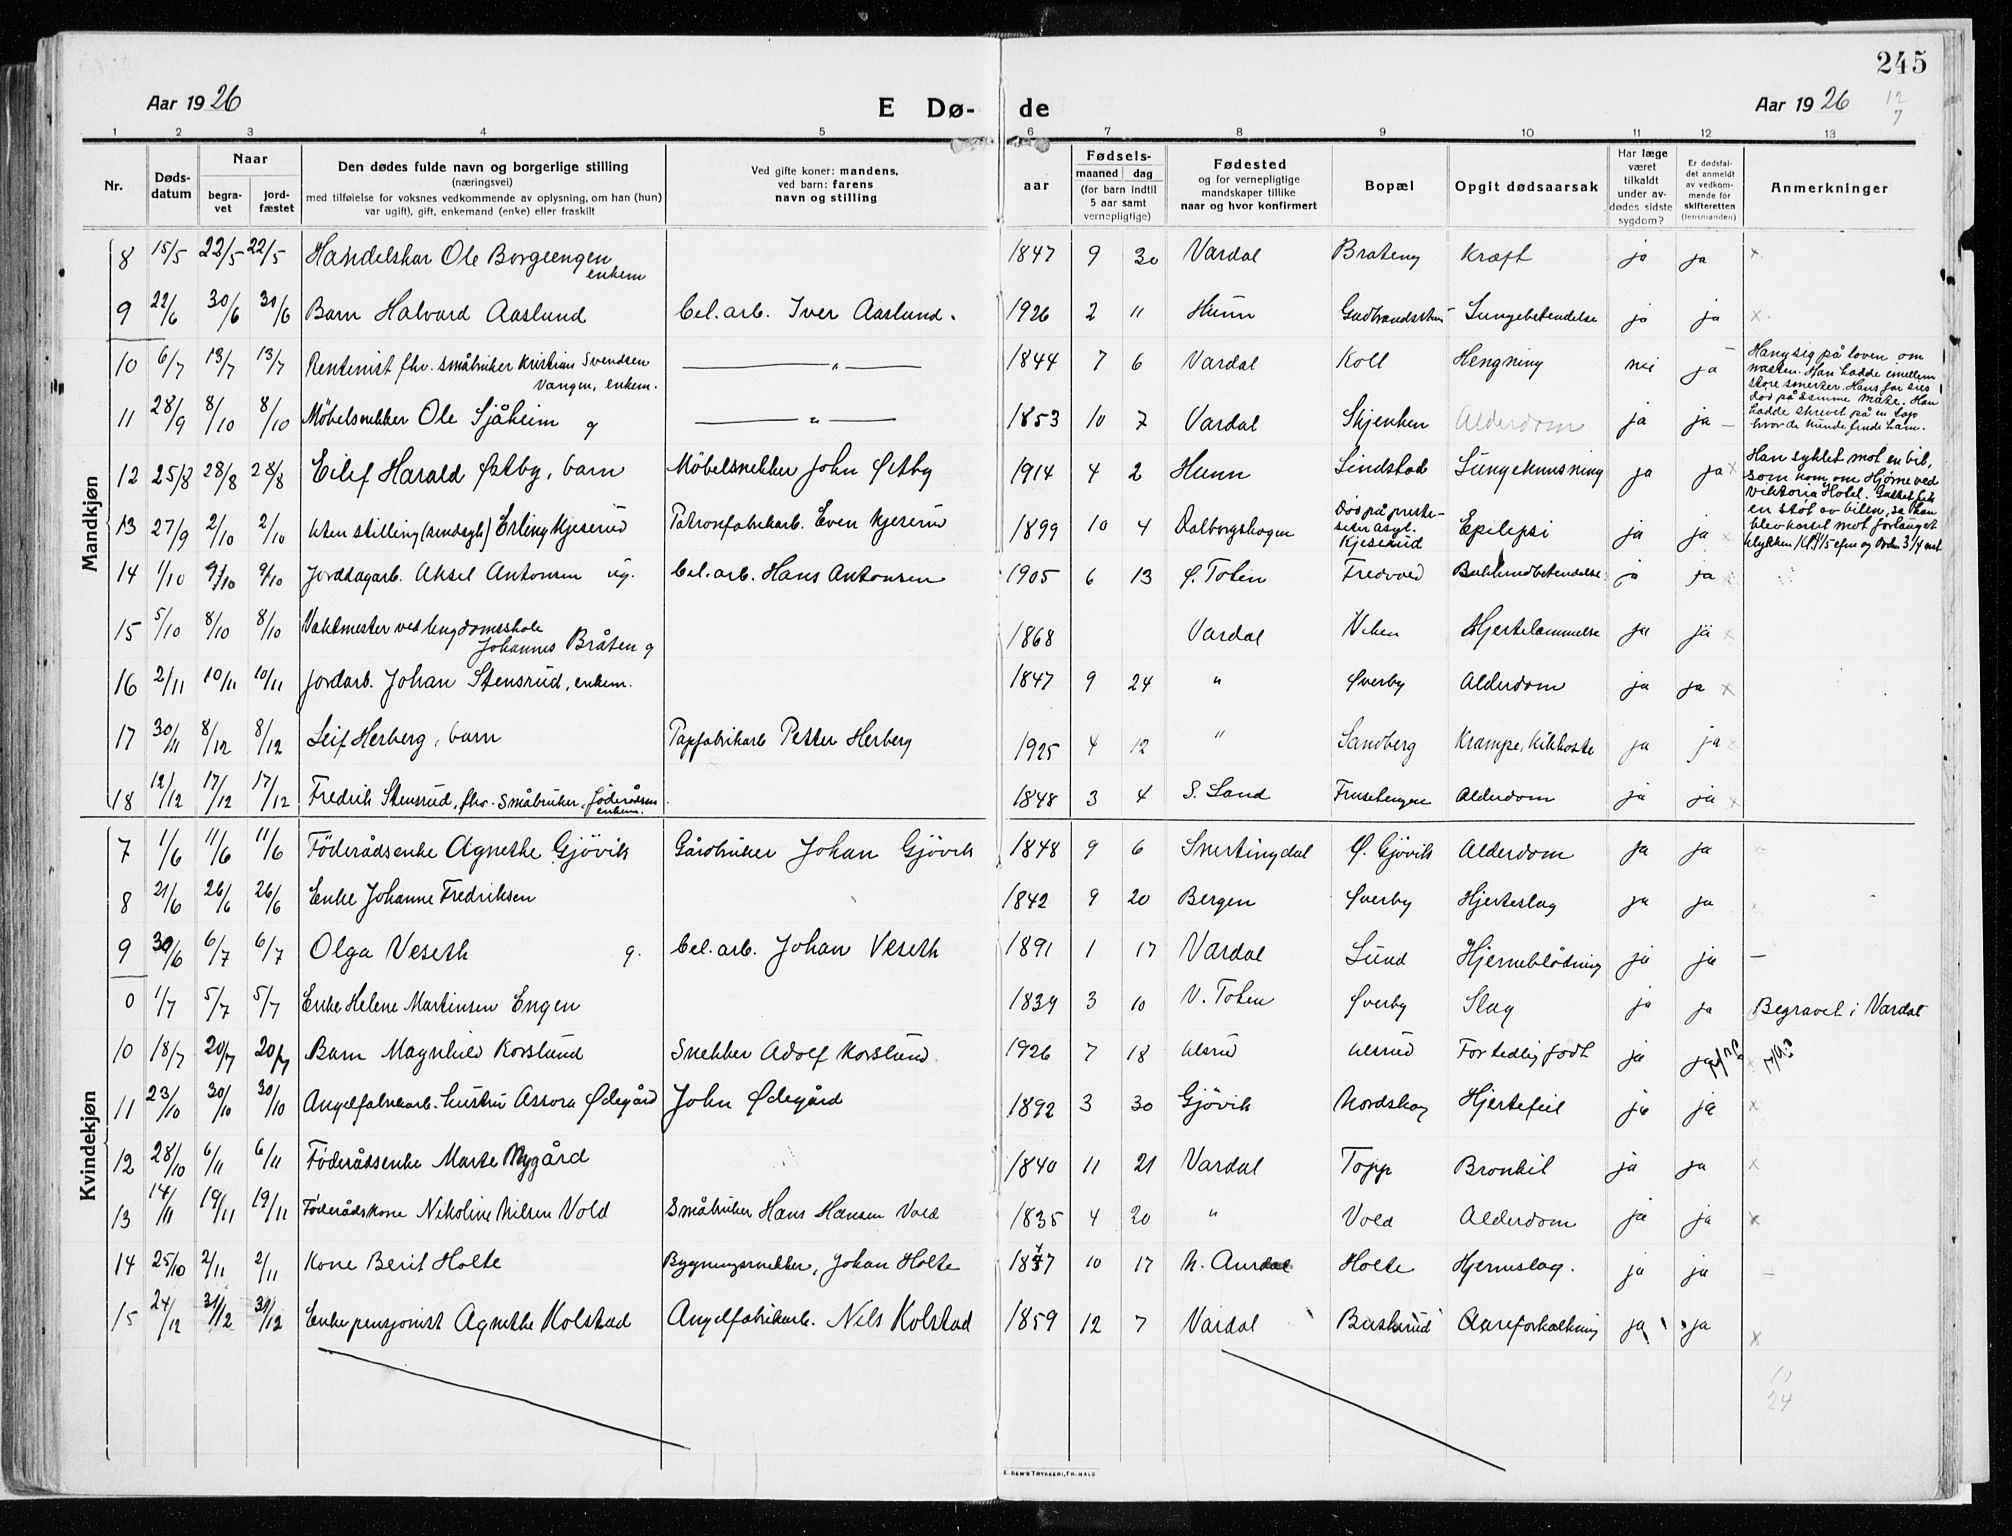 245
Aar 1926 E Dø- de Aar 1926 12
7
1 2 3 4 5 6 7 8 9 10 11 12 13
Nr. Dødsdatum Naar begravet jordfæstet
Den dødes fulde navn og borgerlige stilling
(næringsvei)
med tilføielse for voksnes vedkommende av oplysning, om han (hun)
var ugift), gift, enkemand (enke) eller fraskilt
Ved gifte koner: mandens,
ved barn: farens
navn og stilling
Fødsels-
aar maaned dag
(for barn indtil
5 aar samt
vernepligtige)
Fødested
og for vernepligtige
mandskaper tillike
naar og hvor konfirmert
Bopæl
Opgit dødsaarsak
Har læge
været
tilkaldt
under avdødes sidste
sygdom?
Er dødsfaldet anmeldt
av vedkommende for
skifteretten
(lensmanden)
Anmerkninger
Mandkjøn
8 15/5 22/5 22/5 Handelskar Ole Borgeengen enkem 1847 9 30 Vardal Brateng Kræft ja ja x
9 22/6 30/6 30/6 Barn Halvard Aaslund Cel.arb. Iver Aaslund. 1926 2 11 Hunn Lungebetendelse ja ja x
10 6/7 13/7 13/7 Rentenist fhv. småbruker Kristian Svendsen Vangen, enkem. — " — 1844 7 6 Vardal Koll Hengning nei ja Hang sig på loven om
natten. Han hadde imellem
store smerter. Hans far sies
død på samme måte. Han
hadde skrevet på en lap
hvor de kunde finde ham.
11 28/9 8/10 8/10 Møbelsnekker Ole Sjåheim g — " — 1853 10 7 Vardal Skjenken Alderdom ja ja —
12 25/8 28/8 28/8 Eilef Harald Østby, barn Møbelsnekker John Østby 1914 4 2 Hunn Lindstad Lungeknusning ja ja x Han syklet mot en bil,
som kom om Hjørne ved
Viktoria Hotel. Gutten fik
en støt av bilen, så han
blev kastet mot fortauget
13 27/9 2/10 2/10 Uten stilling (sindsyk) Erling Kjeserud Patronfabrikarb. Even Kjeserud 1899 10 4 Dalborgskogen Død på prestesæter asyl. Kjeserud Epilepsi ja ja x
14 1/10 9/10 9/10 Jorddagarb. Aksel Antonsen ug. Cel.arb. Hans Antonsen 1905 6 13 Ø. Toten Fredvold Bukhindbetendelse ja ja x
15 5/10 8/10 8/10 Vaktmester ved Ungdomsskole Johannes Bråten g 1868 Vardal Viken Hjertelammelse ja ja x
16 2/11 10/11 10/11 Jordarb. Johan Stensrud, enkem. 1847 9 24 " Øverby Alderdom ja ja x
17 30/11 8/12 8/12 Leif Herberg, barn Papfabrikarb Petter Herberg 1925 4 12 " Sandberg Krampe, Kikhoste ja ja x
18 12/12 17/12 17/12 Fredrik Stensrud, fhv. Småbruker, Føderådsm enkem. 1848 3 4 S. Land Frusetengen Alderdom ja ja x
Kvindekjøn
7 1/6 11/6 11/6 Föderådsenke Agnethe Gjövik Gårdbruker Johan Gjövik 1848 9 6 Snertingdal Ø. Gjövik Alderdom ja ja
8 21/6 26/6 26/6 Enke Johanne Fredriksen 1842 9 20 Bergen Øverby Hjerteslag ja ja
9 30/6 6/7 6/7 Olga Veseth g. Cel.arb. Johan Veseth 1891 1 17 Vardal Lund Hjerneblödning ja ja —
0 1/7 5/7 5/7 Enke Helene Martinsen Engen 1839 3 10 V. Toten Øverby Slag ja ja Begravet i Vardal
10 18/7 20/7 20/7 Barn Magnhild Korslund Snekker Adolf Korslund. 1926 7 18 Alsrud Alsrud For tidlig født ja ja
11 23/10 30/10 30/10 Angelfabrikarb. hustru Assora Ødegård John Ødegård 1892 3 30 Gjövik Nordskog Hjertefeil ja ja x
12 28/10 6/11 6/11 Föderådsenke Marte Nygård 1840 11 21 Vardal Topp Bronkit ja ja x
13 14/11 19/11 19/11 Föderådskone Nikoline Nilsen Vold Småbruker Hans Hansen Vold 1835 4 20 " Vold Alderdom ja ja x
14 25/10 2/11 2/11 Kone Berit Holte Bygningssnekker, Johan Holte 1877 10 17 N. Aurdal Holte Hjerneslag. ja ja —
15 24/12 31/12 31/12 Enke pensjonist Agnethe Kolstad Angelfabrikarb. Nils Kolstad 1859 12 7 Vardal Baskerud Aareforkalkning ja ja x
24
E. SEM'S TRYKKERI, FR.HALD